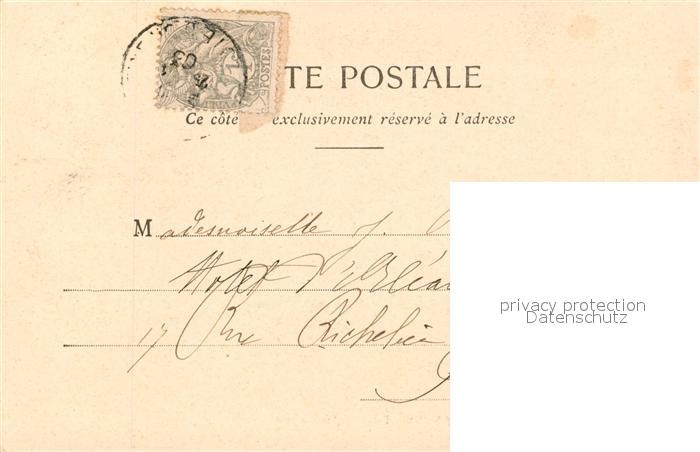 TE POSTALE
Ce côté exclusivement réservé à l'adresse
POSTES
03
Mademoiselle J.
Hotel d'Orléa
17 Rue Richelieu
privacy protection
Datenschutz